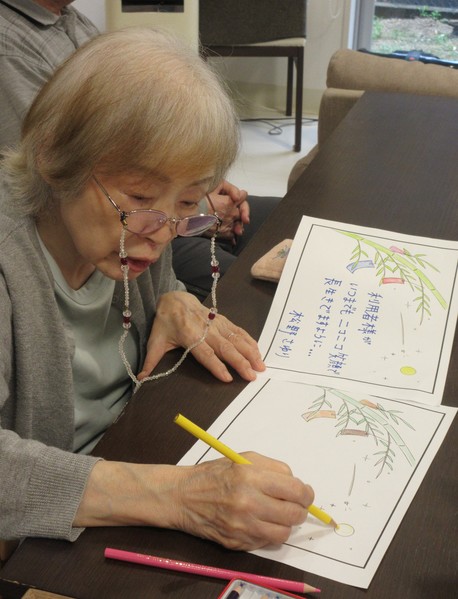 利用者様が
いつまでもニコニコ笑顔で
長生きできますように…